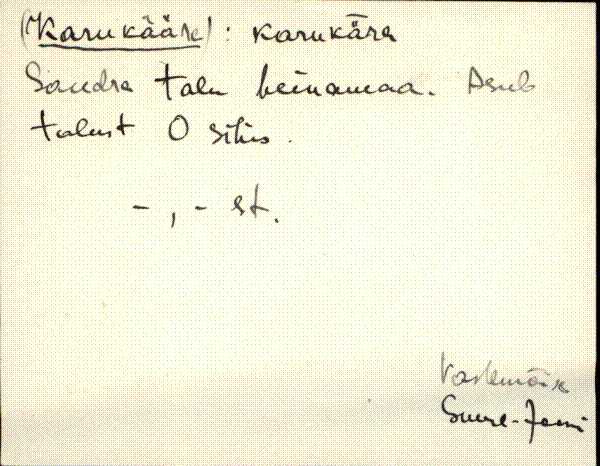 (Karukääre) : karukāra
Sandra talu heinamaa. Asub
talust O sihis.
-, - st.
Vastemõisa
Suure-Jaani